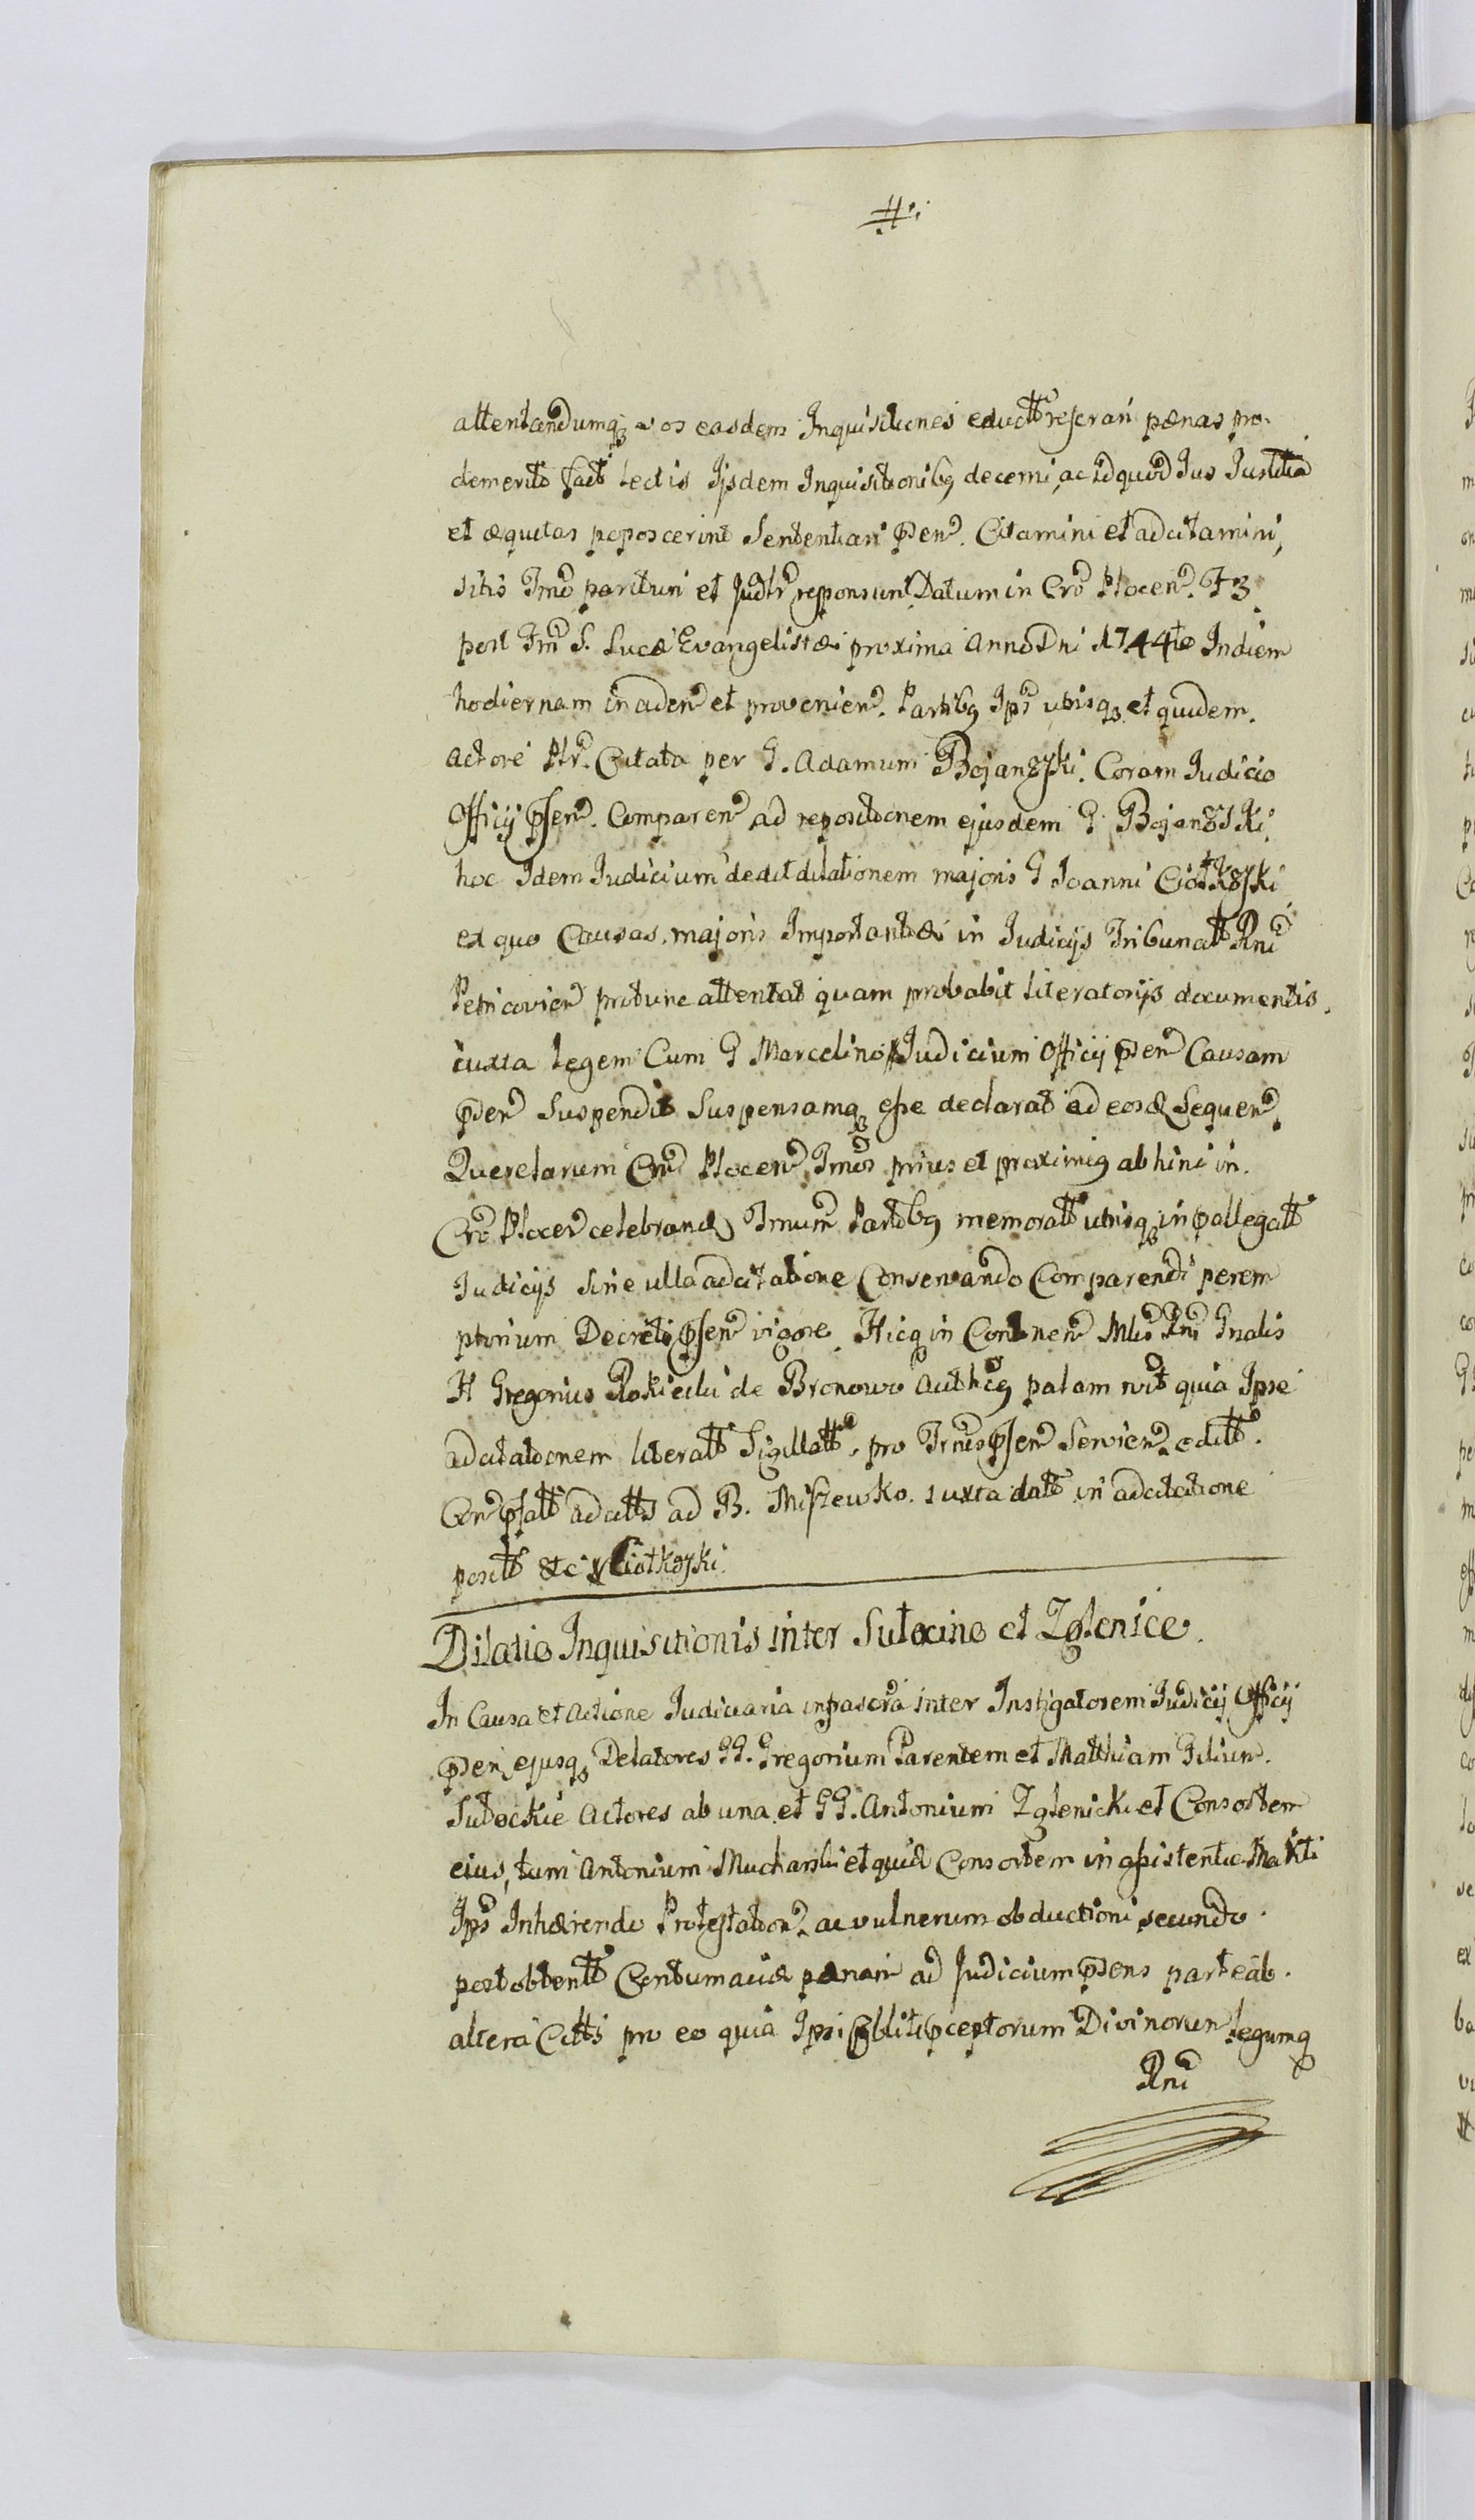 attentandumq3 vos easdem Inquisitiones eductt referari pœnas pro
demerito facti lectis Ijsdem Inquisitionibq decerni, ac id quod Jus Justitia
et æquitas poposcerint Sententiari Psen. Citamini et adcitamini,
sitis Tmo parituri et Judlr responsuri Datum in Cro Plocen. F 3
post Fm S. Lucæ Evangelistæ proxima Anno Dni 1744to In diem
hodiernam inciden et provenien. Partibq Ips utrisq3 et quidem
Actore Citata per G. Adamum Bojanszki. Coram Judicio
Officij Psen. Comparen ad repositionem ejusdem G Bojanski
hoc Idem Judicium dedit dilationem majoris G Joanni Ciotkoszki
ex quo Causas majoris Importantiæ in Judicijs Tribunalt Rni
Petricovien protunc attentat quam probabit literatorijs documentis
iuxta legem Cum G Marcelino Judicium Officij Psen Causam
Psen Suspendit Suspensamq3 esse declarat ad eosd Sequen
Querelarum Cro Plocen Tmos prius et proximiq abhinc in
Cro Plocen celebrand Tmum Partibq memoratt utrisq3 in Pallegatt
Judicijs Sine ulla adcitatione Conservando Comparendi perem
ptorium Decreti Psen vigore. Hicq in Continen Mlis Rni Gnalis
H Gregorius Rokicki de Bronowo Authcq palam rvit quia Ipse
adcitationem literatt Sigillatt pro Trnis Psen Servien editt
Con Psatt adcitts ad B. Miszewko iuxta datt in adcitatione
positt etc Ciotkoszki
Dilatio Inquisitionis inter Sutocino et Zglenice.
In Causa et Actione Judiciaria infascra inter Instigatorem Judicij Officij
Psen, ejusq3 Delatores GG. Gregorium Parentem et Matthiam Filium
Sutockie Actores ab una et GG. Antonium Zglenicki et Consortem
eius, tum Antonium Mucharski et quid Consortem in assistentia Mariti
Ips Inhærendo Protestation ac vulnerum obductioni secundo
post obtentt Contumaciæ pœnam ad Judicium Psens parte ab
altera Citts pro eo quia Ipsi obliti Pceptorum Divinorum legumq
Rni